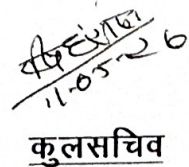 11-05-26
कुलसचिव